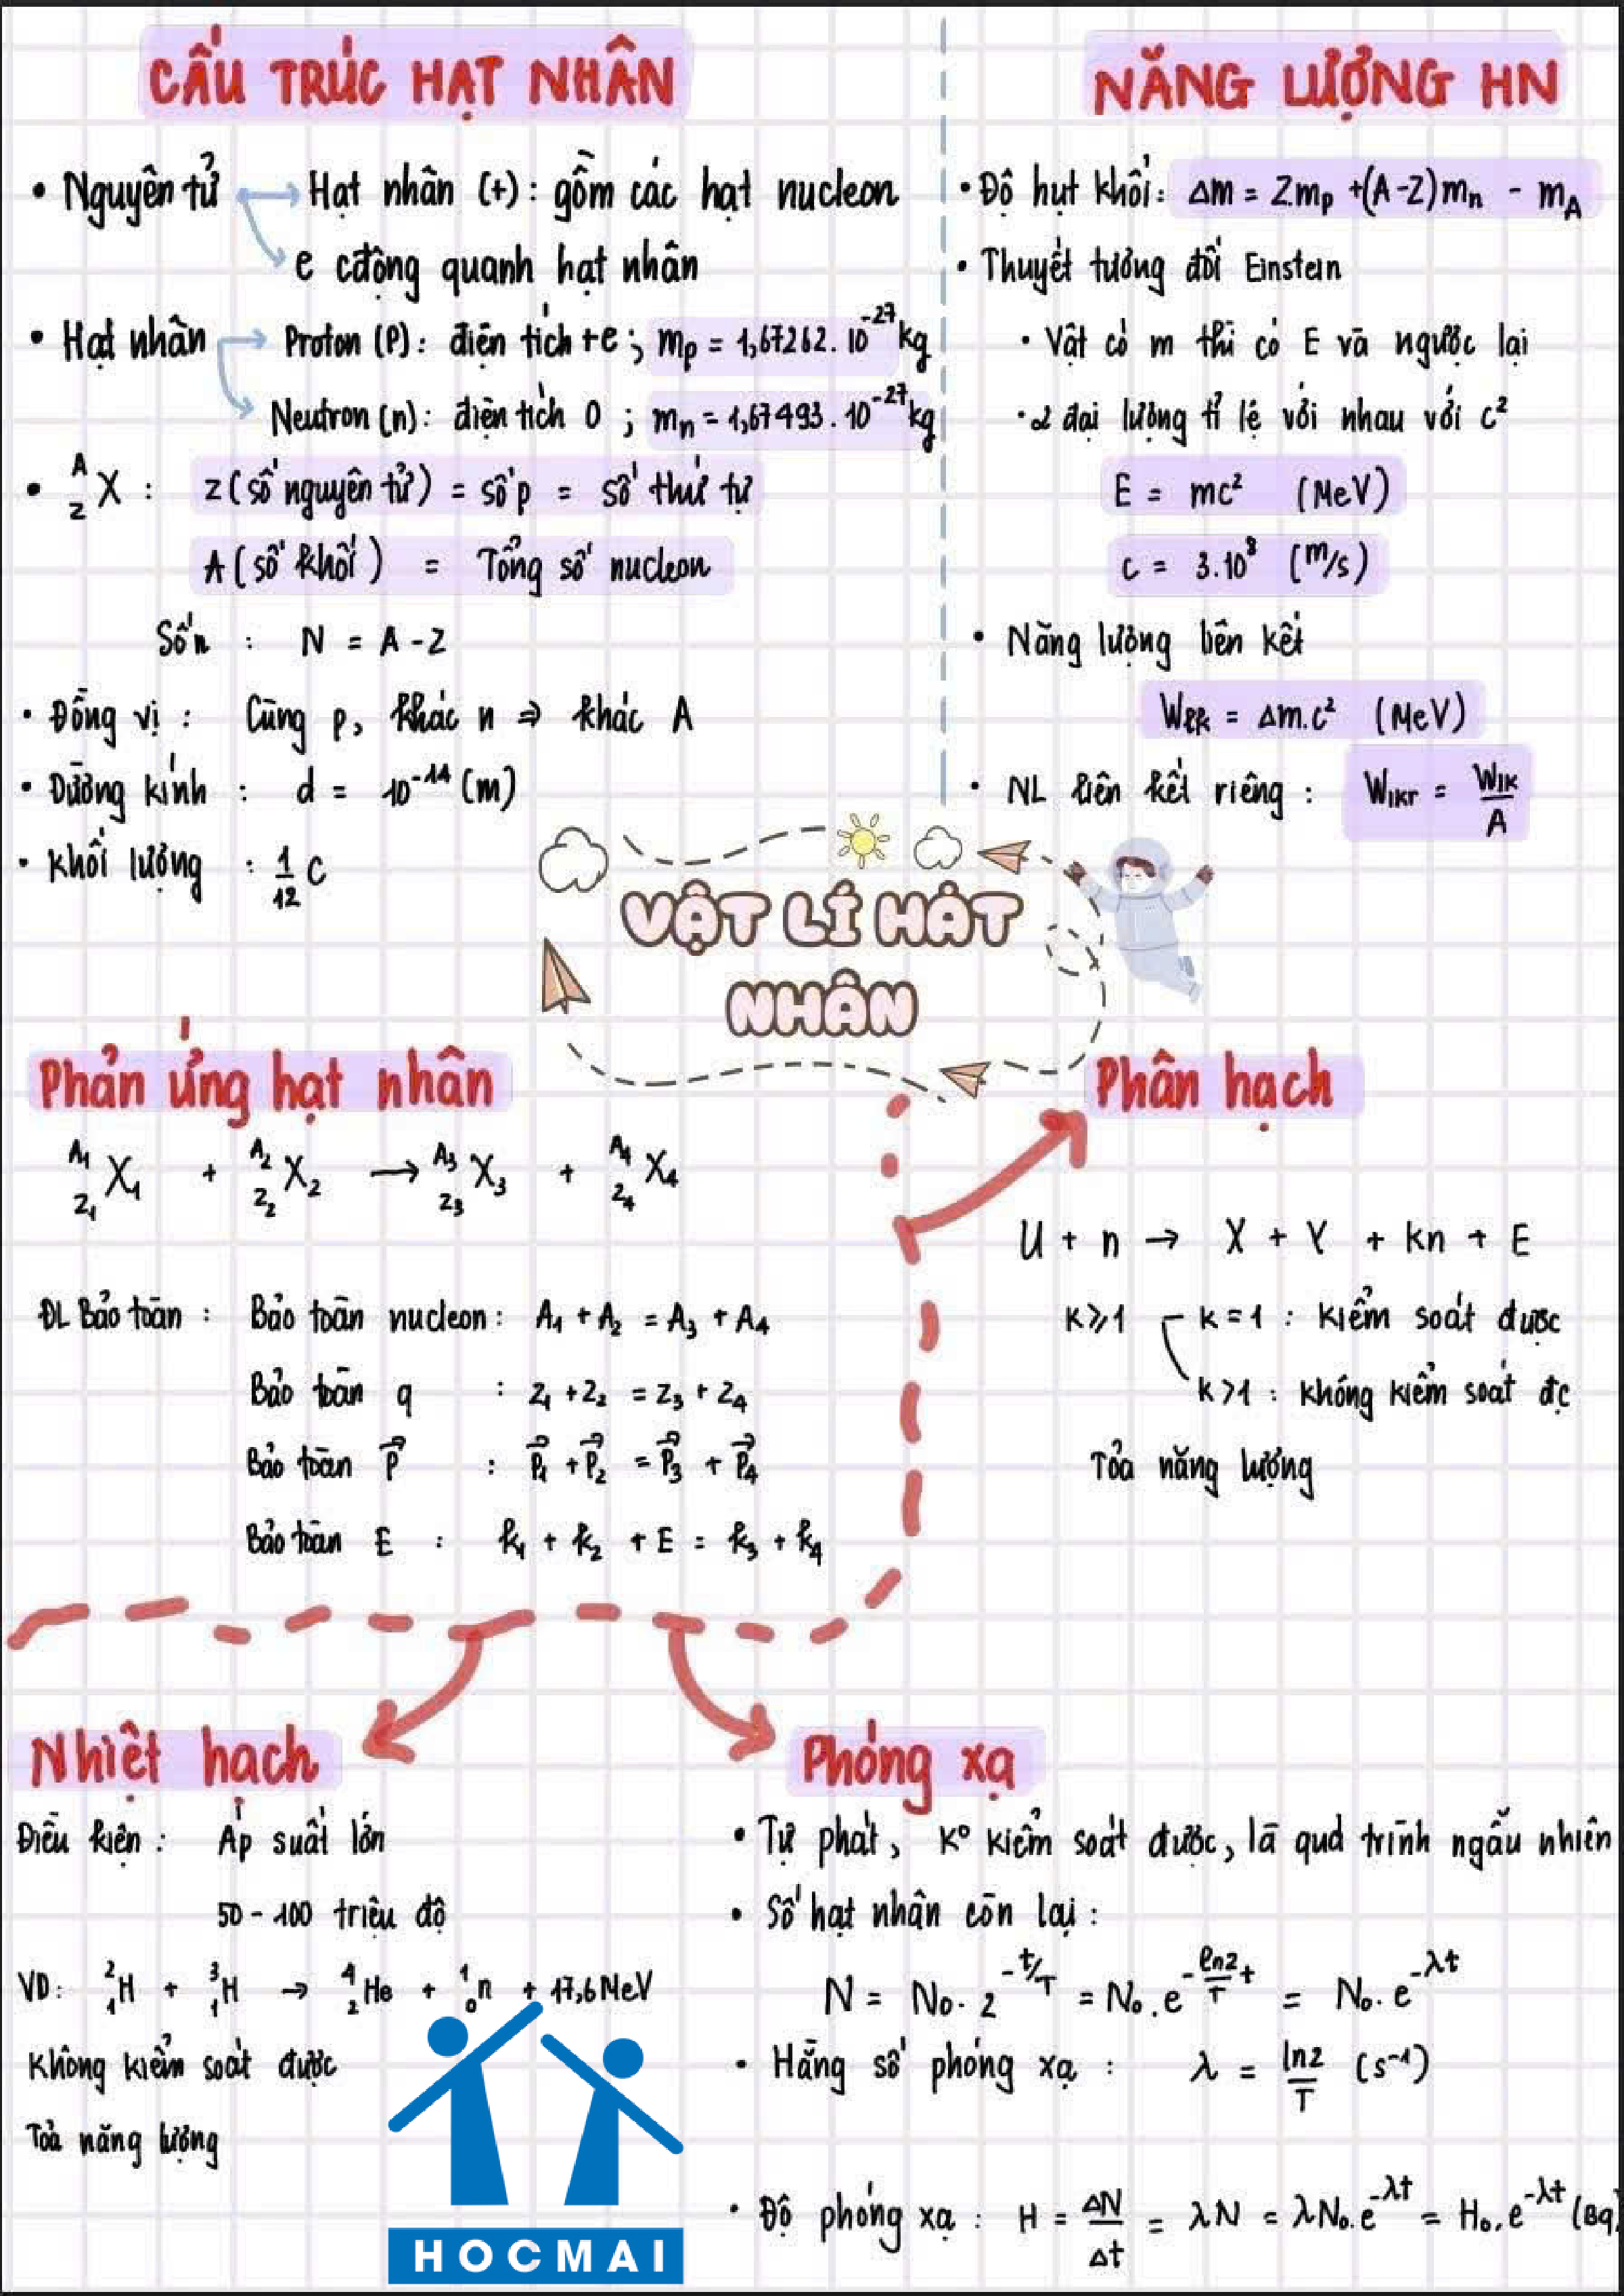 CẤU TRÚC HẠT NHÂN
• Nguyên tử → Hạt nhân (+) : gồm các hạt nucleon
e cđộng quanh hạt nhân
• Hạt nhân → Proton (P) : điện tích +e ; mₚ = 1,67262.10⁻²⁷ kg
Neutron (n) : điện tích 0 ; mₙ = 1,67493.10⁻²⁷ kg
• ᴬ_Z X : Z (số nguyên tử) = số p = số thứ tự
A (số khối) = Tổng số nucleon
Số n : N = A - Z
• Đồng vị : Cùng p, khác n ⇒ khác A
• Đường kính : d = 10⁻¹⁴ (m)
• Khối lượng : 1/12 C
NĂNG LƯỢNG HN
• Độ hụt khối : Δm = Zmₚ + (A-Z)mₙ - m_A
• Thuyết tương đối Einstein
• Vật có m thì có E và ngược lại
• 2 đại lượng tỉ lệ với nhau với c²
E = mc² (MeV)
c = 3.10⁸ (m/s)
• Năng lượng liên kết
Wℓk = Δm.c² (MeV)
• NL liên kết riêng : Wlkr = Wlk/A
VẬT LÍ HẠT
NHÂN
Phản ứng hạt nhân
ᴬ¹_Z₁ X₁ + ᴬ²_Z₂ X₂ → ᴬ³_Z₃ X₃ + ᴬ⁴_Z₄ X₄
ĐL Bảo toàn : Bảo toàn nucleon : A₁ + A₂ = A₃ + A₄
Bảo toàn q : Z₁ + Z₂ = Z₃ + Z₄
Bảo toàn P⃗ : P⃗₁ + P⃗₂ = P⃗₃ + P⃗₄
Bảo toàn E : k₁ + k₂ + E = k₃ + k₄
Phân hạch
U + n → X + Y + kn + E
k ⩾ 1 k = 1 : kiểm soát được
k > 1 : không kiểm soát đc
Tỏa năng lượng
Nhiệt hạch
Điều kiện : Áp suất lớn
50 - 100 triệu độ
VD : ²₁H + ³₁H → ⁴₂He + ¹₀n + 17,6 MeV
Không kiểm soát được
Toả năng lượng
Phóng xạ
• Tự phát, k° kiểm soát được, là quá trình ngẫu nhiên
• Số hạt nhân còn lại :
N = N₀. 2^(-t/T) = N₀.e^(-(ln2/T)t) = N₀. e^(-λt)
• Hằng số phóng xạ : λ = ln2/T (s⁻¹)
• Độ phóng xạ : H = ΔN/Δt = λN = λN₀.e^(-λt) = H₀.e^(-λt) (Bq)
HOCMAI